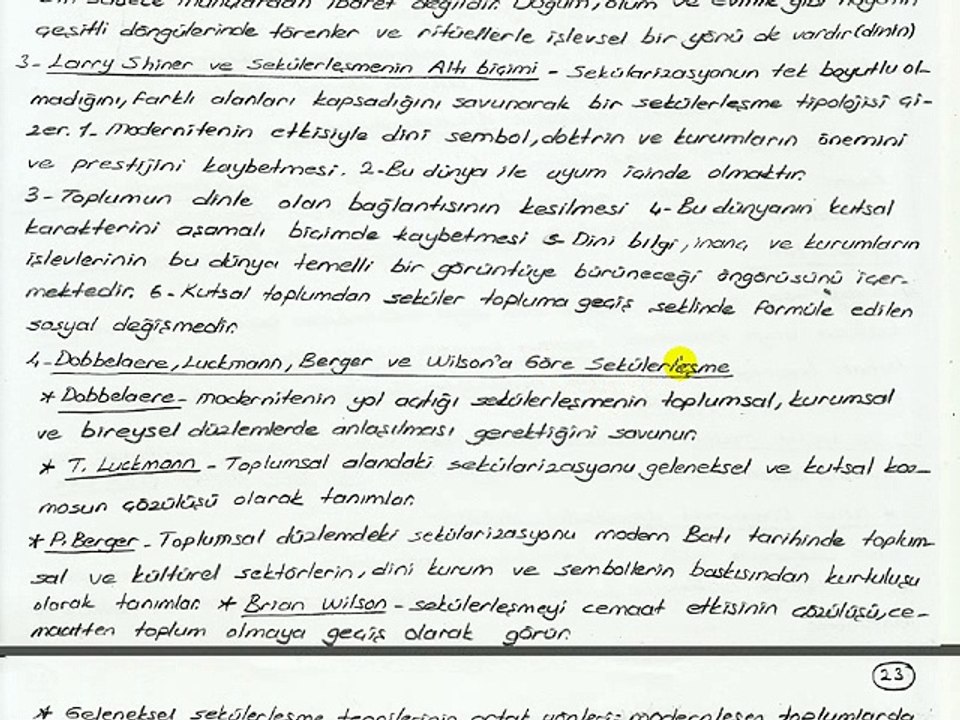 çeşitli döngülerinde törenler ve ritüellerle işlevsel bir yönü de vardır(dinin)
3- Larry Shiner ve Sekülerleşmenin Altı biçimi - Sekülarizasyonun tek boyutlu ol-
madığını, farklı alanları kapsadığını savunarak bir sekülerleşme tipolojisi çi-
zer. 1- Modernitenin etkisiyle dini sembol, doktrin ve kurumların önemini
ve prestijini kaybetmesi. 2-Bu dünya ile uyum içinde olmaktır.
3- Toplumun dinle olan bağlantısının kesilmesi 4- Bu dünyanın kutsal
karakterini aşamalı biçimde kaybetmesi 5- Dini bilgi, inanç ve kurumların
işlevlerinin bu dünya temelli bir görüntüye bürüneceği öngörüsünü içer-
mektedir. 6- Kutsal toplumdan seküler topluma geçiş şeklinde formüle edilen
sosyal değişmedir.
4- Dobbelaere, Luckmann, Berger ve Wilson'a Göre Sekülerleşme
* Dobbelaere- modernitenin yol açtığı sekülerleşmenin toplumsal, kurumsal
ve bireysel düzlemlerde anlaşılması gerektiğini savunur.
* T. Luckmann - Toplumsal alandaki sekülarizasyonu geleneksel ve kutsal koz-
mosun çözülüşü olarak tanımlar.
* P. Berger - Toplumsal düzlemdeki sekülarizasyonu modern Batı tarihinde toplum-
sal ve kültürel sektörlerin, dini kurum ve sembollerin baskısından kurtuluşu
olarak tanımlar. * Brian Wilson - sekülerleşmeyi cemaat etkisinin çözülüşü, ce-
maatten toplum olmaya geçiş olarak görür.
23
* Geleneksel sekülerleşme teorilerinin ortak yönleri: modernleşen toplumlarda